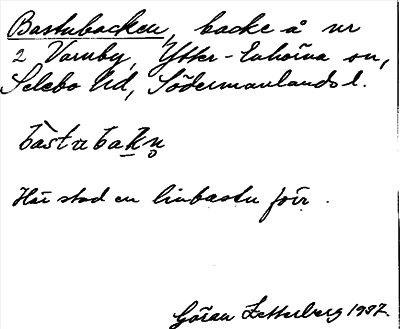 Bastubacken, backe å nr
2 Varnby, Ytter-Enhörna sn,
Selebo hd, Södermanlands l.
bàstubakn̥
Här stod en linbastu förr.
Göran Zetterberg 1937